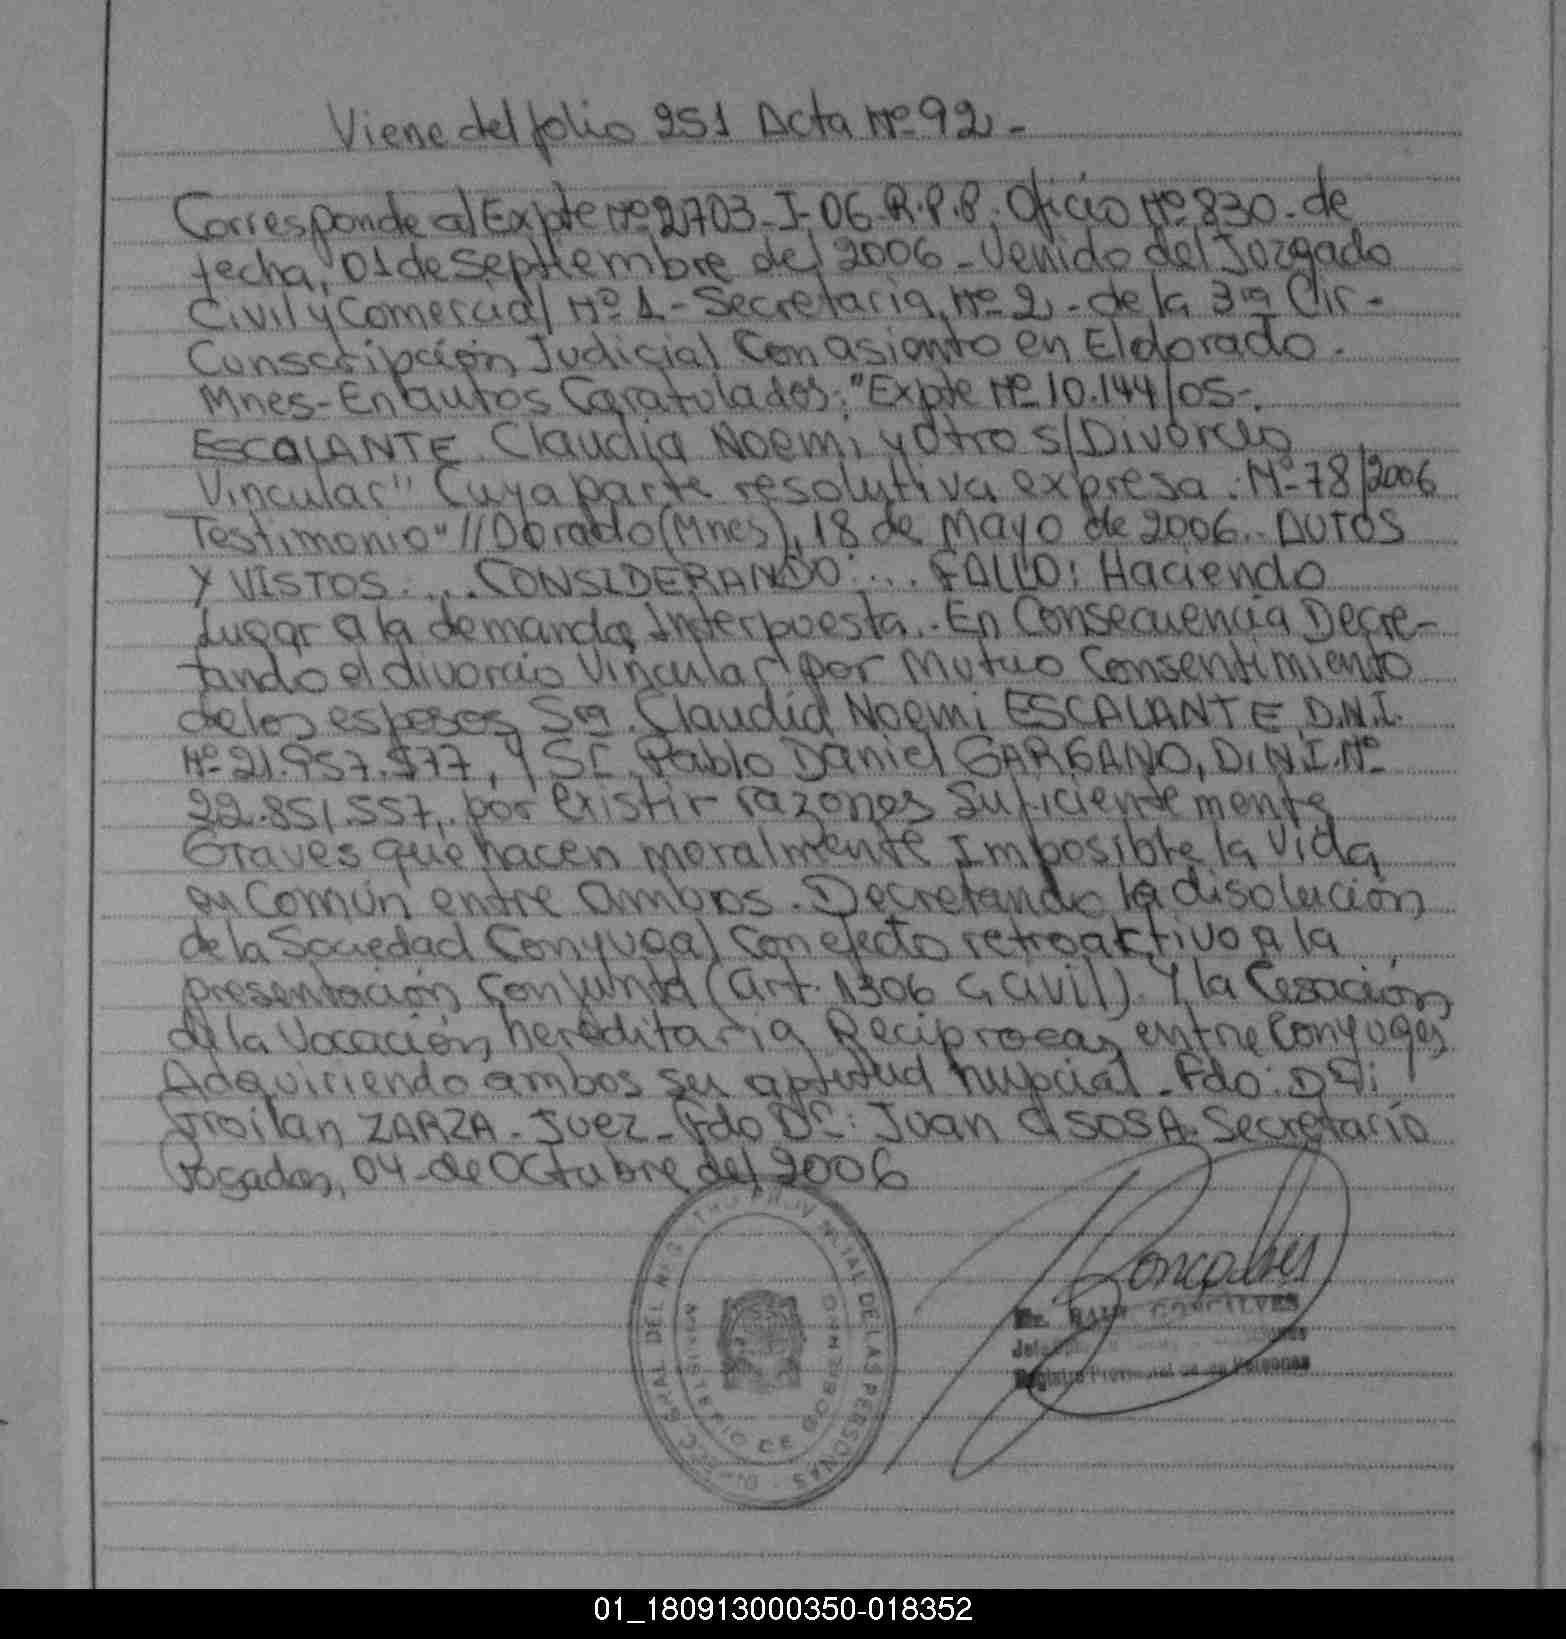 Viene del folio 251 Acta Nº 92-
Corresponde al Expte Nº 2703-I-06-R.P.P. Oficio Nº 830-de
fecha, 01 de Septiembre del 2006-Venido del Juzgado
Civil y Comercial Nº 1-Secretaria Nº 2-de la 3ra Cir-
Cunscripción Judicial Con asiento en Eldorado.
Mnes-En autos Caratulados: "Expte Nº 10.144/05-.
ESCALANTE Claudia Noemi y Otro s/Divorcio
Vincular" Cuya parte resolutiva expresa: Nº-78/2006
Testimonio "//Dorado (Mnes), 18 de Mayo de 2006.. AUTOS
Y VISTOS:... CONSIDERANDO:... FALLO: Haciendo
Lugar a la demanda Interpuesta.-En Consecuencia Decre-
tando el divorcio Vincular por Mutuo Consentimiento
de los esposos Sra. Claudia Noemi ESCALANTE, D.N.I.
Nº 21.957. y Sr. Pablo Daniel GARGANO, D.N.I. Nº
22.851.557, por existir razones Suficientemente
Graves que hacen moralmente Imposible la Vida
en Común entre ambos. Decretando la disolución
de la Sociedad Conyugal Con efecto retroaktivo a la
presentación Conjunta (art. 1306 C. Civil). Y la Cesación
de la Vocación hereditaria Reciprocas entre Conyuges
Adquiriendo ambos su aptitud nupcial-Fdo:
Froilan ZARZA-Juez-Fdo Dr: Juan SOSA-Secretario
Posadas, 04-de Octubre del 2006
DEL REGISTRO PROVINCIAL DE LAS PERSONAS
MINISTERIO DE GOBIERNO
Goncalves
GONCALVES
Registro Provincial de las Personas
01_180913000350-018352